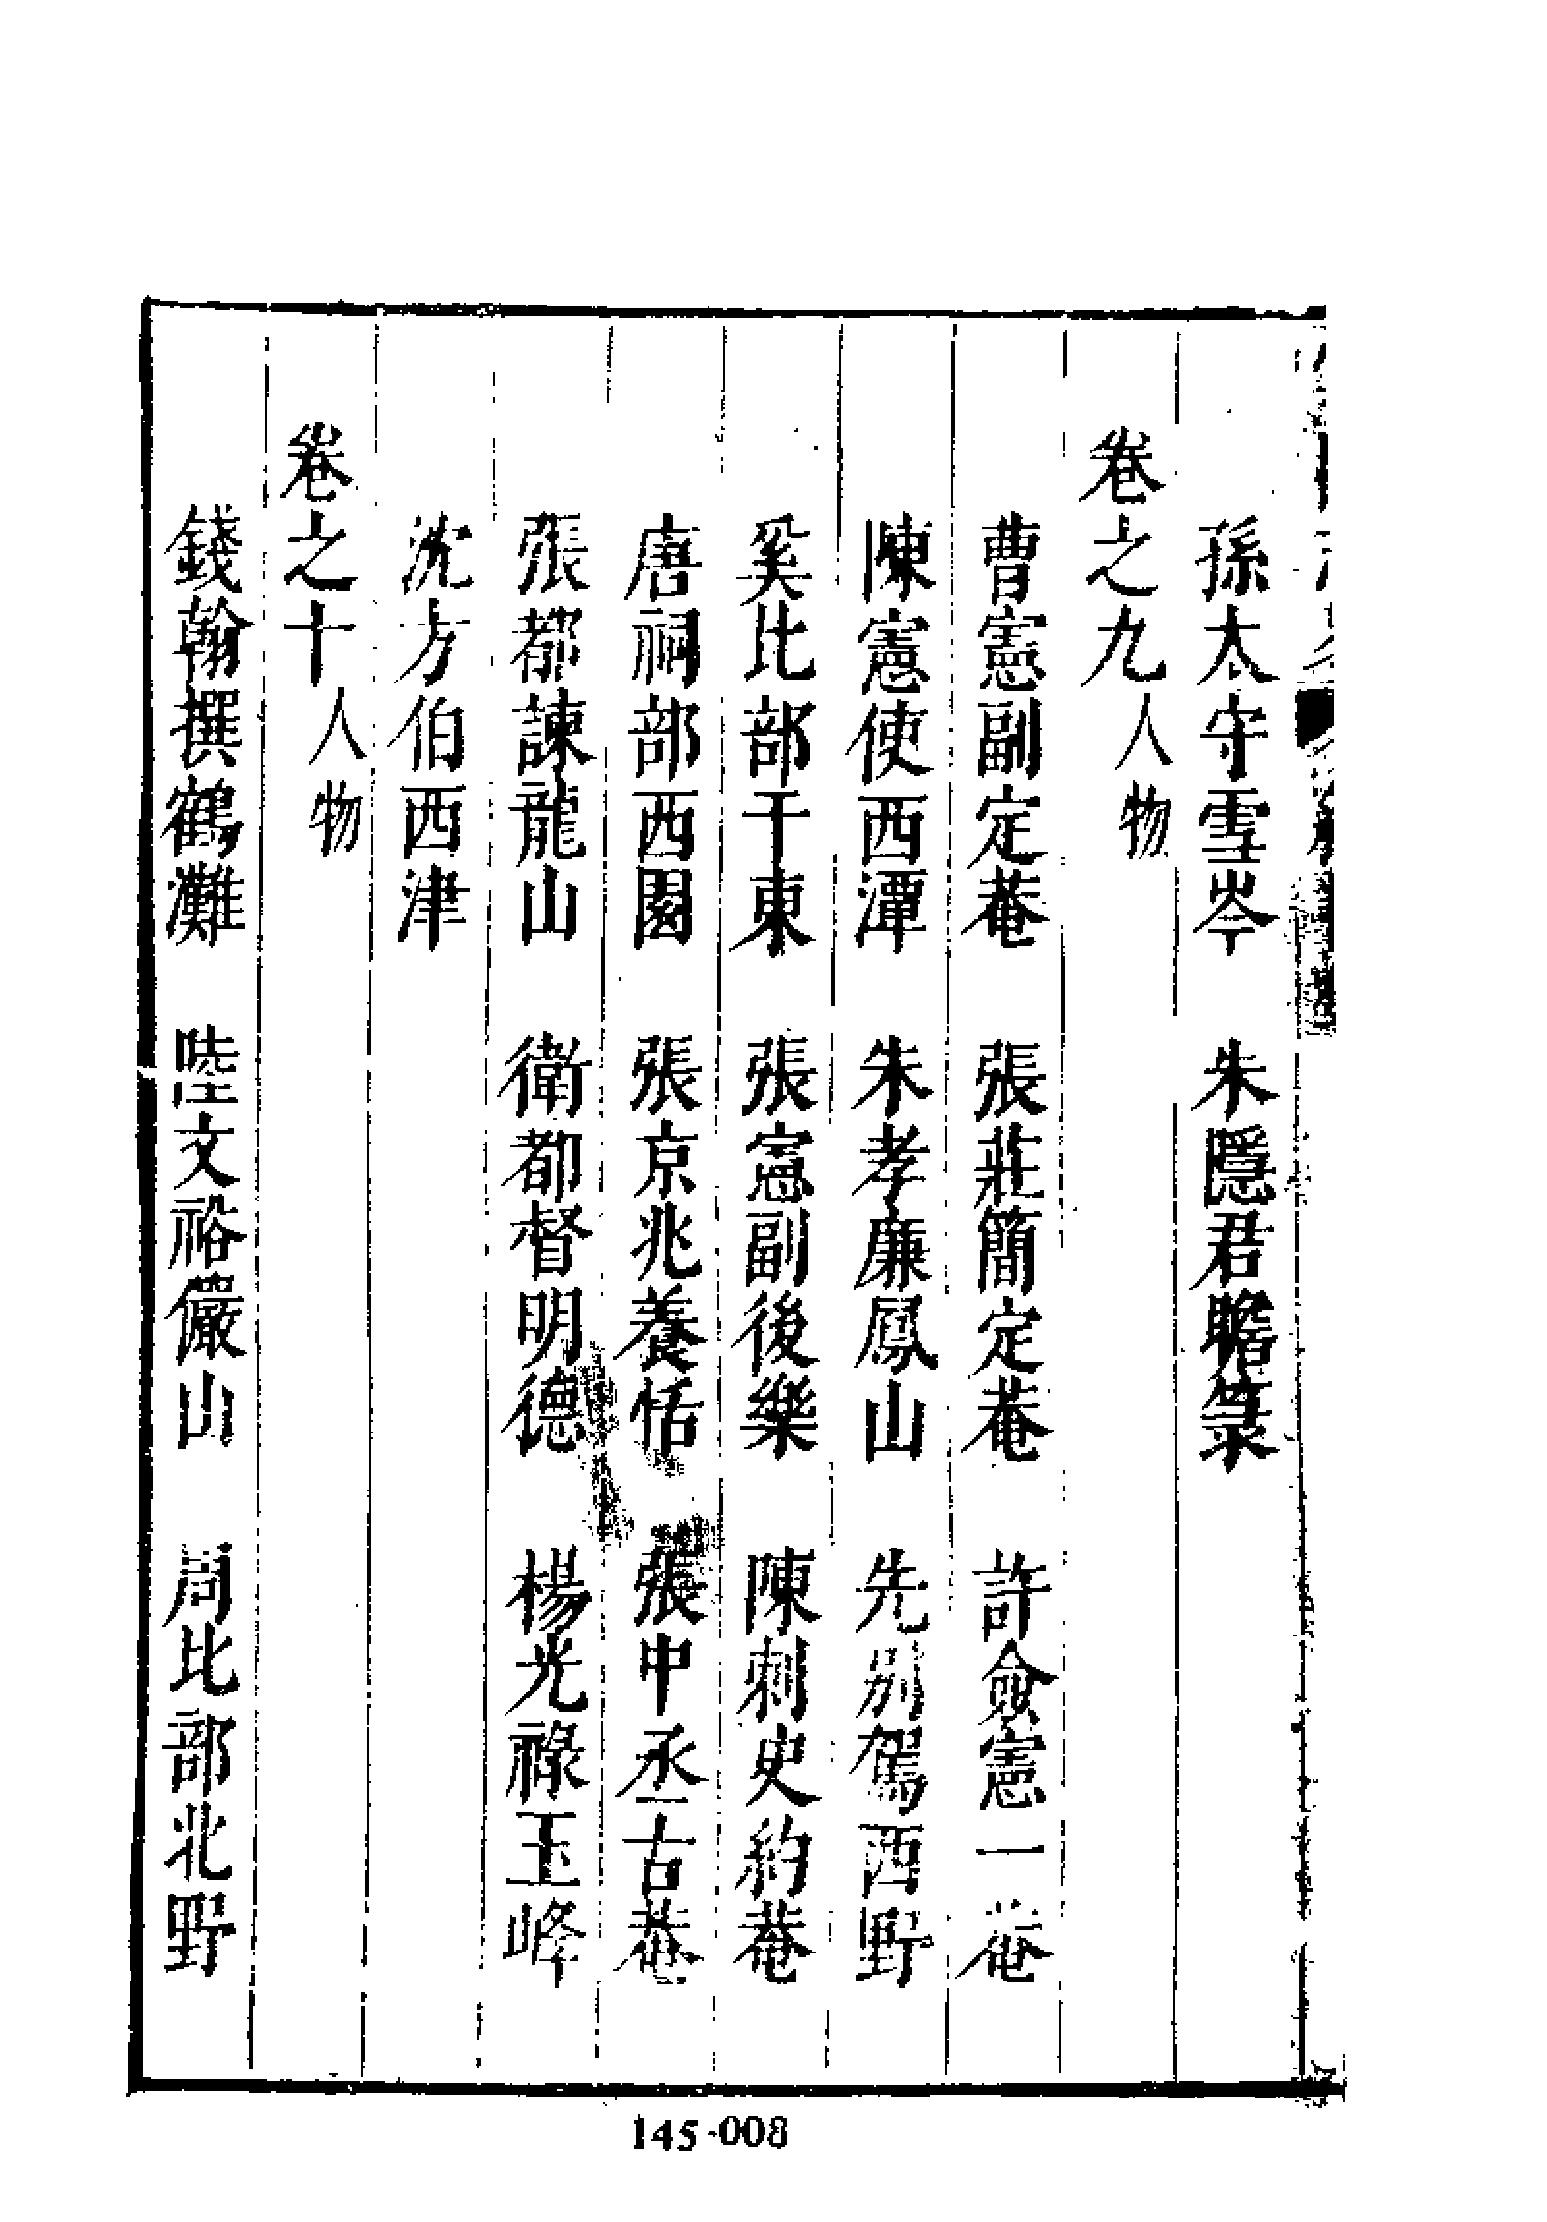 孫太守雪岑　朱隱君瞻箓
卷之九人物
曹憲副定菴　張莊簡定菴　許僉憲一菴
陳憲使西潭　朱孝廉鳳山　先別駕西野
奚比部干東　張憲副後樂　陳刺史約菴
唐祠部西園　張京兆養恬　張中丞古菴
張都諫龍山　衛都督明德　楊光祿玉峰
沈方伯西津
卷之十人物
錢翰撰鶴灘　陸文裕儼山　周比部北野
145-008